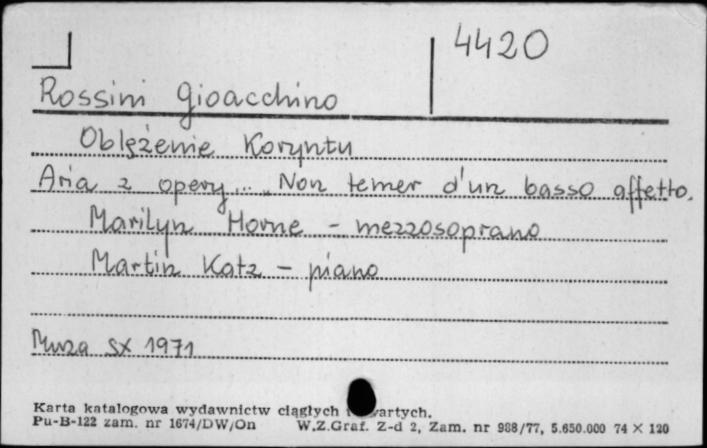 4420
Rossini Gioacchino
Oblężenie Koryntu
Aria z opery... „Non temer d'un basso affetto.
Marilyn Horne - mezzosoprano
Martin Katz - piano
Muza SX 1971
Karta katalogowa wydawnictw ciągłych i wartych.
Pu-B-122 zam. nr 1674/DW/On W.Z.Graf. Z-d 2, Zam. nr 988/77, 5.650.000 74 × 120